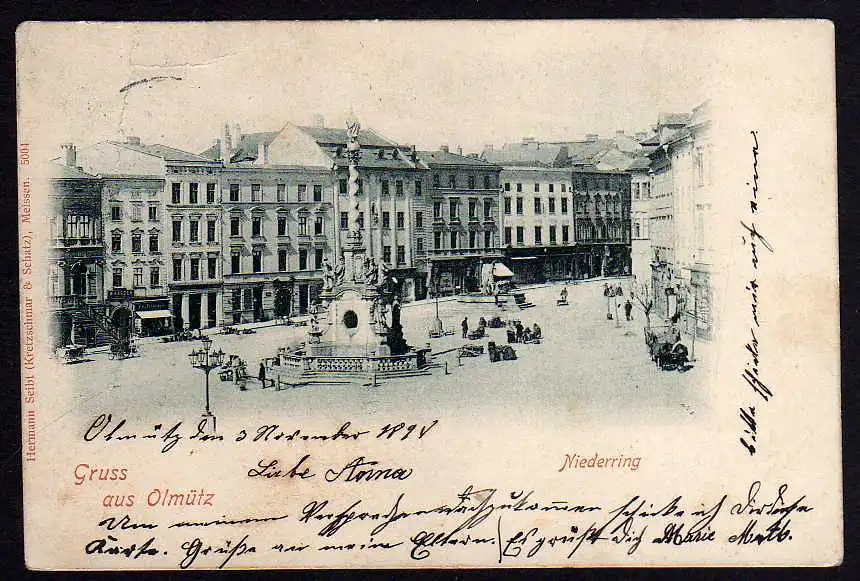 Hermann Seibt (Kretzschmar & Schatz), Meissen. 5004
Olmütz den 3 November 189
Gruss
aus Olmütz
Niederring
Liebe Anna
Um meinem Versprechen nachzukommen schicke ich Dir diese
Karte. Grüße an meine Eltern. Es grüßt Dich Marie
bitte wieder mir auf eine